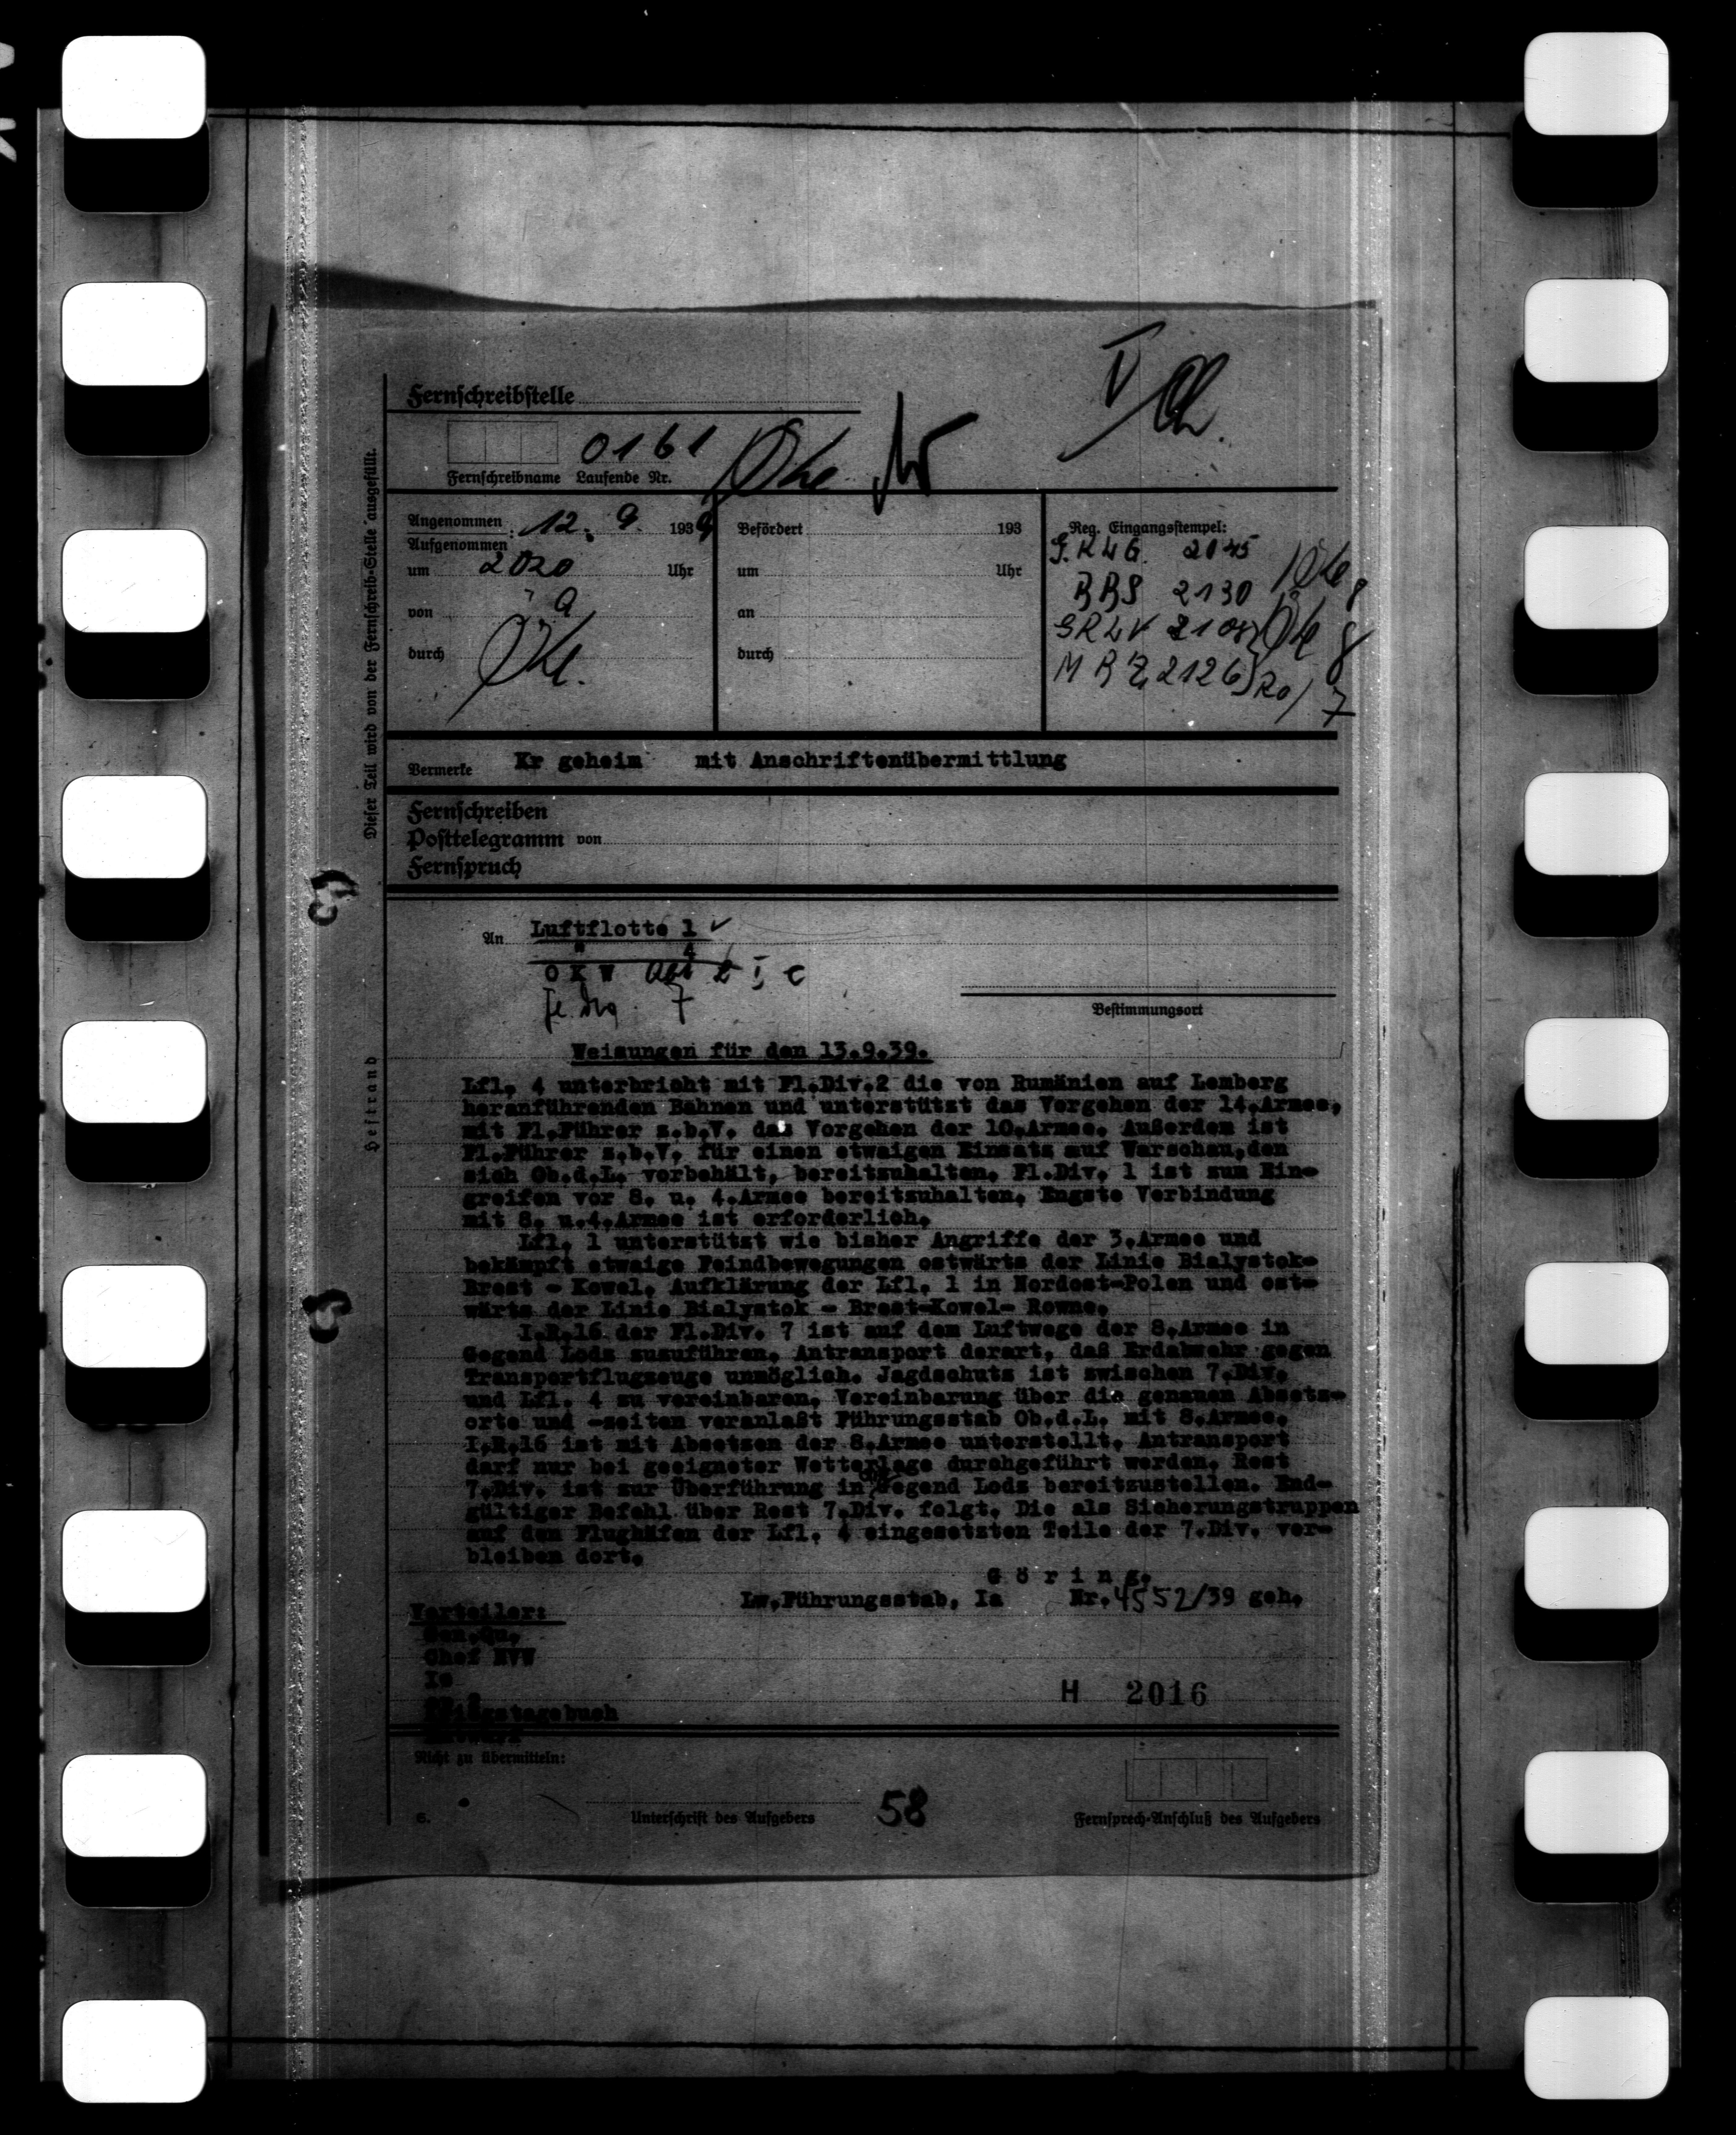 Fernschreibstelle
0161
Fernschreibname Laufende Nr.
Dieser Teil wird von der Fernschreib-Stelle ausgefüllt.
Angenommen
Aufgenommen : 12. 9. 1939
um 2020 Uhr
von
durch
Befördert 193
um Uhr
an
durch
Reg. Eingangsstempel:
2045
2130
2108
2126
Vermerke Kr geheim mit Anschriftenübermittlung
Fernschreiben
Posttelegramm von
Fernspruch
An Luftflotte 1
" 4
O K W
Bestimmungsort
Heftrand
Weisungen für den 13.9.39.
Lfl. 4 unterbricht mit Fl.Div.2 die von Rumänien auf Lemberg
heranführenden Bahnen und unterstützt das Vorgehen der 14.Armee,
mit Fl.Führer z.b.V. das Vorgehen der 10.Armee. Außerdem ist
Fl.Führer z.b.V. für einen etwaigen Einsatz auf Warschau,den
sich Ob.d.L. vorbehält, bereitzuhalten. Fl.Div. 1 ist zum Ein-
greifen vor 8. u. 4.Armee bereitzuhalten. Engste Verbindung
mit 8. u.4.Armee ist erforderlich.
Lfl. 1 unterstützt wie bisher Angriffe der 3.Armee und
bekämpft etwaige Feindbewegungen ostwärts der Linie Bialystok-
Brest - Kowel. Aufklärung der Lfl. 1 in Nordost-Polen und ost-
wärts der Linie Bialystok - Brest-Kowel- Rowne.
I.R.16 der Fl.Div. 7 ist auf dem Luftwege der 8.Armee in
Gegend Lodz zuzuführen. Antransport derart, daß Erdabwehr gegen
Transportflugzeuge unmöglich. Jagdschutz ist zwischen 7.Div.
und Lfl. 4 zu vereinbaren. Vereinbarung über die genauen Absetz-
orte und -zeiten veranlaßt Führungsstab Ob.d.L. mit 8.Armee.
I.R.16 ist mit Absetzen der 8.Armee unterstellt. Antransport
darf nur bei geeigneter Wetterlage durchgeführt werden. Rest
7.Div. ist zur Überführung in Gegend Lodz bereitzustellen. End-
gültiger Befehl über Rest 7.Div. folgt. Die als Sicherungstruppen
auf den Flughäfen der Lfl. 4 eingesetzten Teile der 7.Div. ver-
bleiben dort.
G ö r i n g.
Lw.Führungsstab, Ia Nr.4552/39 geh.
Verteiler:
Gen.Qu.
Chef NVW
Ic
Kriegstagebuch
H 2016
Nicht zu übermitteln:
Unterschrift des Aufgebers
58
Fernsprech-Anschluß des Aufgebers